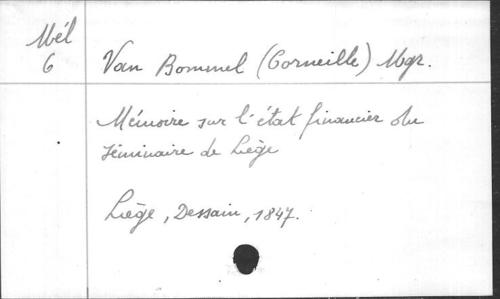 Mél
6
Van Bommel (Corneille) Mgr.
Mémoire sur l'état financier du
séminaire de Liège
Liège, Dessain, 1847.